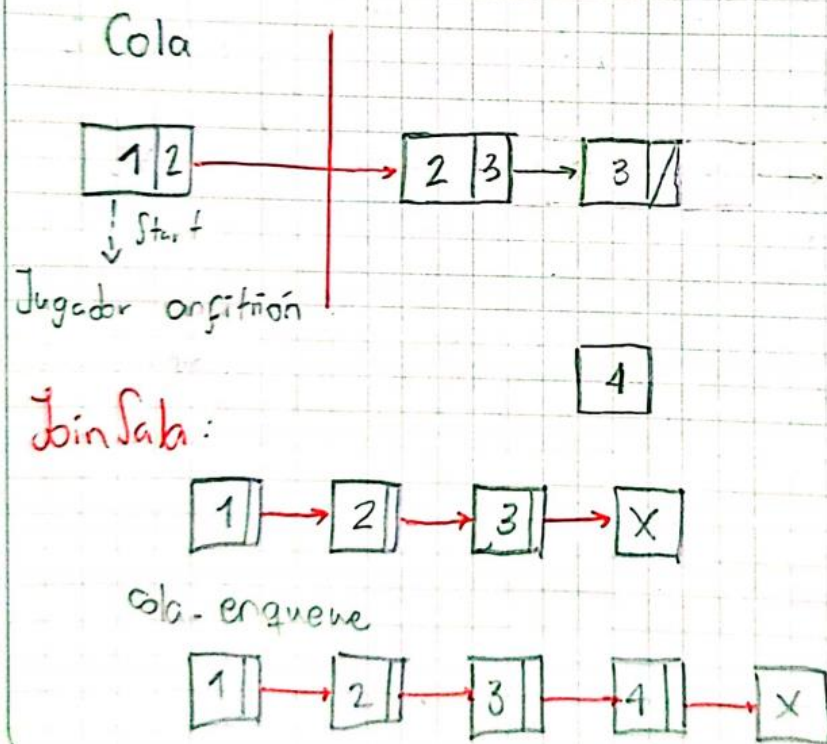 Cola
1 2 2 3 3
Start
Jugador anfitrión
4
Join Sala:
1 2 3 X
cola. enqueue
1 2 3 4 X